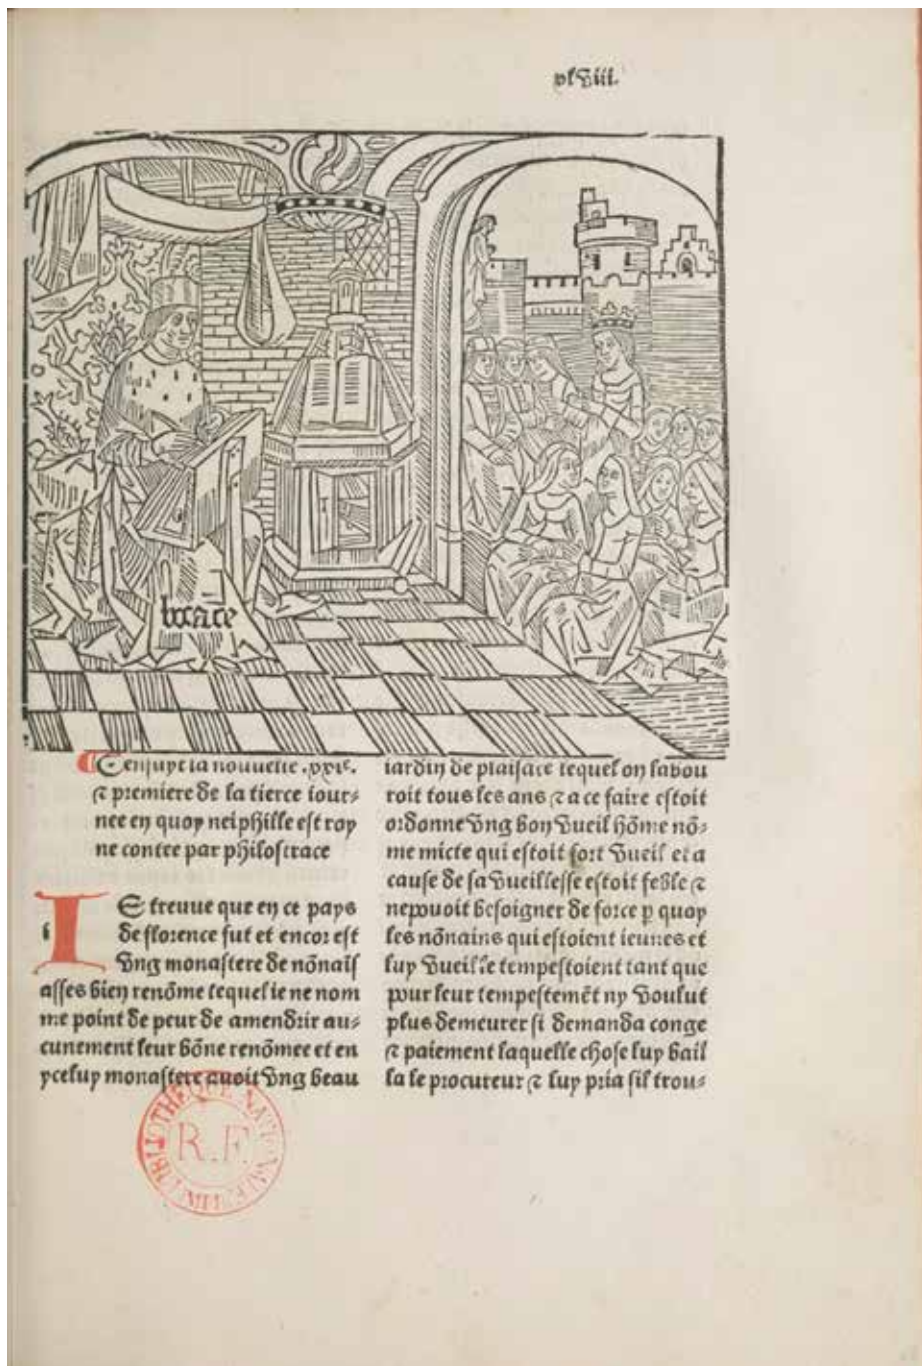 xlviii.
bocace
Censuyt la nouvelle .xxie.
⁊ premiere de la tierce iour-
nee en quoy neiphille est roy
ne contee par philostrace
IE treuue que en ce pays
i de florence fut et encor est
vng monastere de nōnais
asses bien renōme lequel ie ne nom
me point de peur de amendrir au-
cunement leur bōne renōmee et en
yceluy monastere auoit vng beau
iardin de plaisāce lequel on labou
roit tous les ans ⁊ a ce faire estoit
ordonne vng bon vueil hōme nō-
me micte qui estoit fort vueil et a
cause de sa vueillesse estoit feble ⁊
nepouoit besoigner de force p̱ quoy
les nōnains qui estoient ieunes et
luy vueille tempestoient tant que
pour leur tempestemēt ny voulut
plus demeurer si demanda conge
⁊ paiement laquelle chose luy bail
la le procureur ⁊ luy pria sil trou-
BIBLIOTHEQUE NATIONALE
R.F.